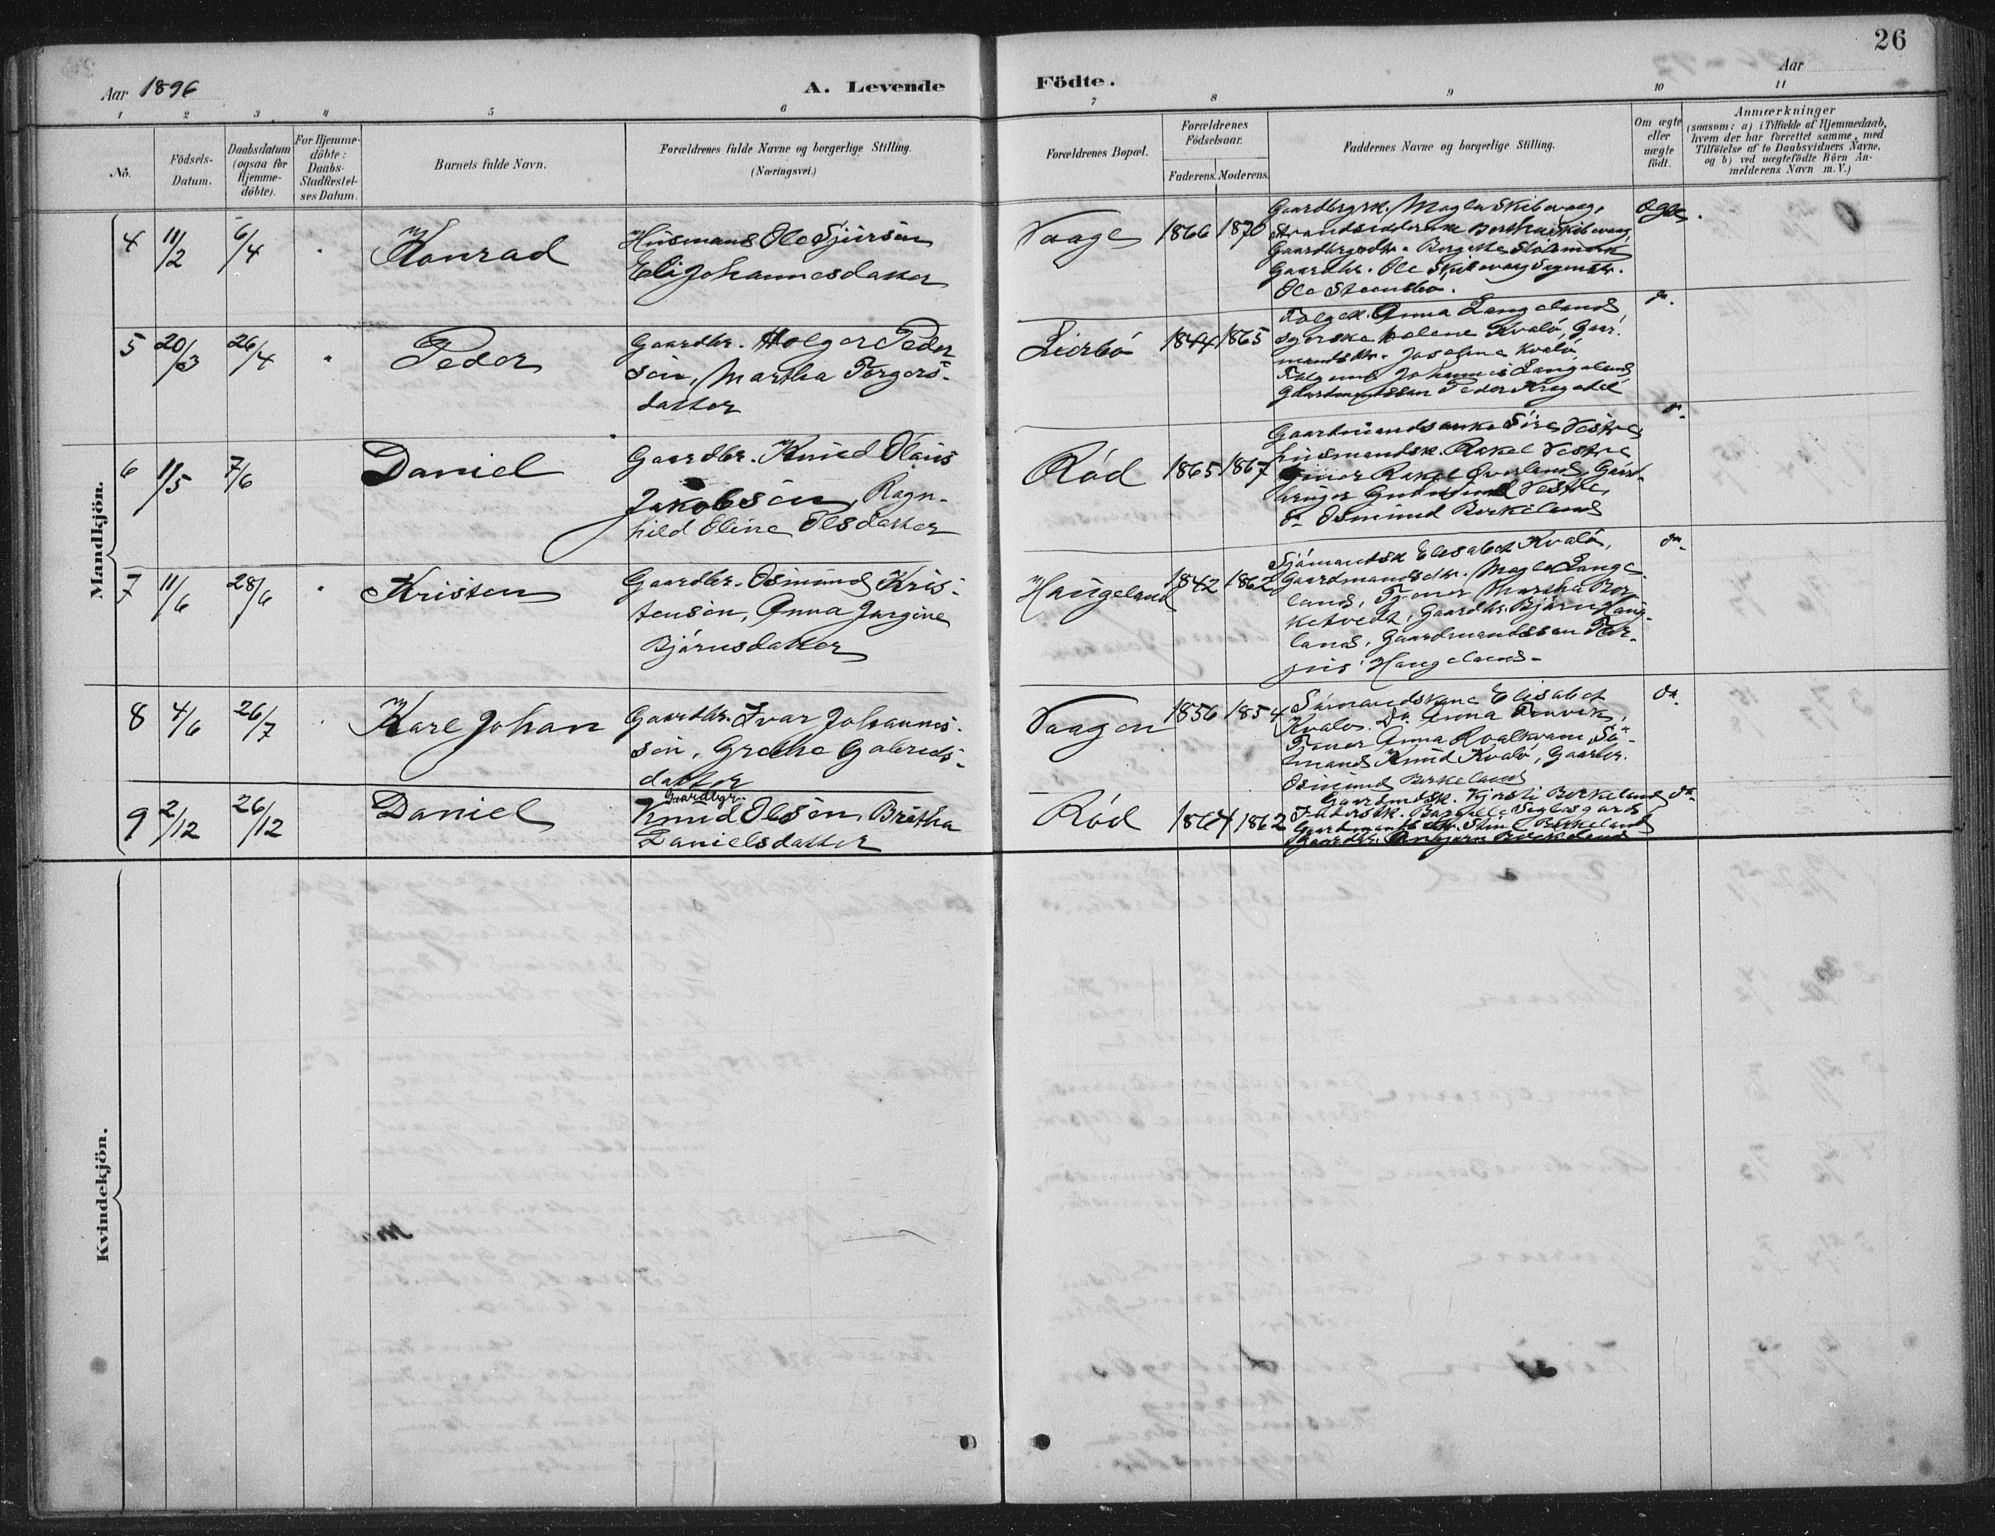 26
Aar 1896
A. Levende
Födte.
Aar
1 2 3 4 5 6 7 8 9 10 11
No.
Födsels-
Datum.
Daabsdatum
(ogsaa for
Hjemme-
döbte).
For Hjemme-
döbte:
Daabs-
Stadfæstel-
ses Datum.
Barnets fulde Navn.
Forældrenes fulde Navne og borgerlige Stilling.
(Næringsvei.)
Forældrenes Bopæl.
Forældrenes
Födselsaar.
Faderens. Moderens.
Faddernes Navne og borgerlige Stilling.
Om ægte
eller
uægte
födt.
Anmærkninger
(saasom: a) i Tilfælde af Hjemmedaab,
hvem der har forrettet samme, med
Tilföielse af to Daabsvidners Navne,
og b) ved uægtefödte Börn An-
melderens Navn m. V.)
Mandkjön.
4 11/2 6/4 Konrad
Husmand Ole Sjursen
Eli Johannesdatter
Vaage 1866 1870
Gaardbrgrk. Magla Skibevaag,
Gaardbr. Ole Skibevaag
Ole Steensbö.
Ægte.
5 20/3 26/4 Peder
Gaardbr. Holger Peder
sen, Martha Torgers-
datter
Lierbö 1844 1865
Anna Langeland
Helene Kvalö,
Josefine Kvalö,
Johannes Langeland
Gaardmandssøn Peder
do.
6 11/5 7/6 Daniel
Gaardbr. Knud Olaus
Jakobsen, Ragn-
hild Oline Olsdatter
Röd 1865 1867
Gaardmandsenke Siri Vestre
Husmandsk. Rakel Vestre
Rakel Överland,
Gudmund Vestre,
do Osmund Birkeland
do.
7 11/6 28/6 Kristen
Gaardbr. Osmund Kris-
tensen, Anna Jorgine
Björnsdatter
Haugeland 1842 1862
Sjömandsk Elisabet Kvalö,
Gaardmandsdtr. Magla Lange-
land, Martha Bor-
ketvedt, Gaardbr. Björn Haug-
land, Gaardmandssøn Tor-
Haugeland.
do.
8 4/6 26/7 Karl Johan
Gaardbr. Ivar Johannes-
sen, Grethe Gabriels-
datter
Vaagen 1856 1854
Elisabet
Kvalö. Do Anna
Anna Kvalkvam, Sö-
mand Knud Kvalö, Gaardbr.
Osmund Birkeland
do.
9 2/12 26/12 Daniel
Gaardbgr.
Knud Olsen, Britha
Danielsdatter
Röd 1864 1862
Gaardmdsk. Kjersti Birkeland
Gaardmands dtr. Birkeland
Gaardbr. Birkeland
do.
Kvindekjön.